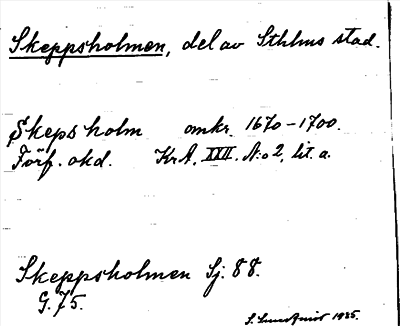 Skeppsholmen, del av Sthlms stad.
Skeps holm omkr. 1670-1700.
Förf. okd. KrA, XXII. N:o 2, lit. a.
Skeppsholmen Sj. 88.
G. 75.
1935.